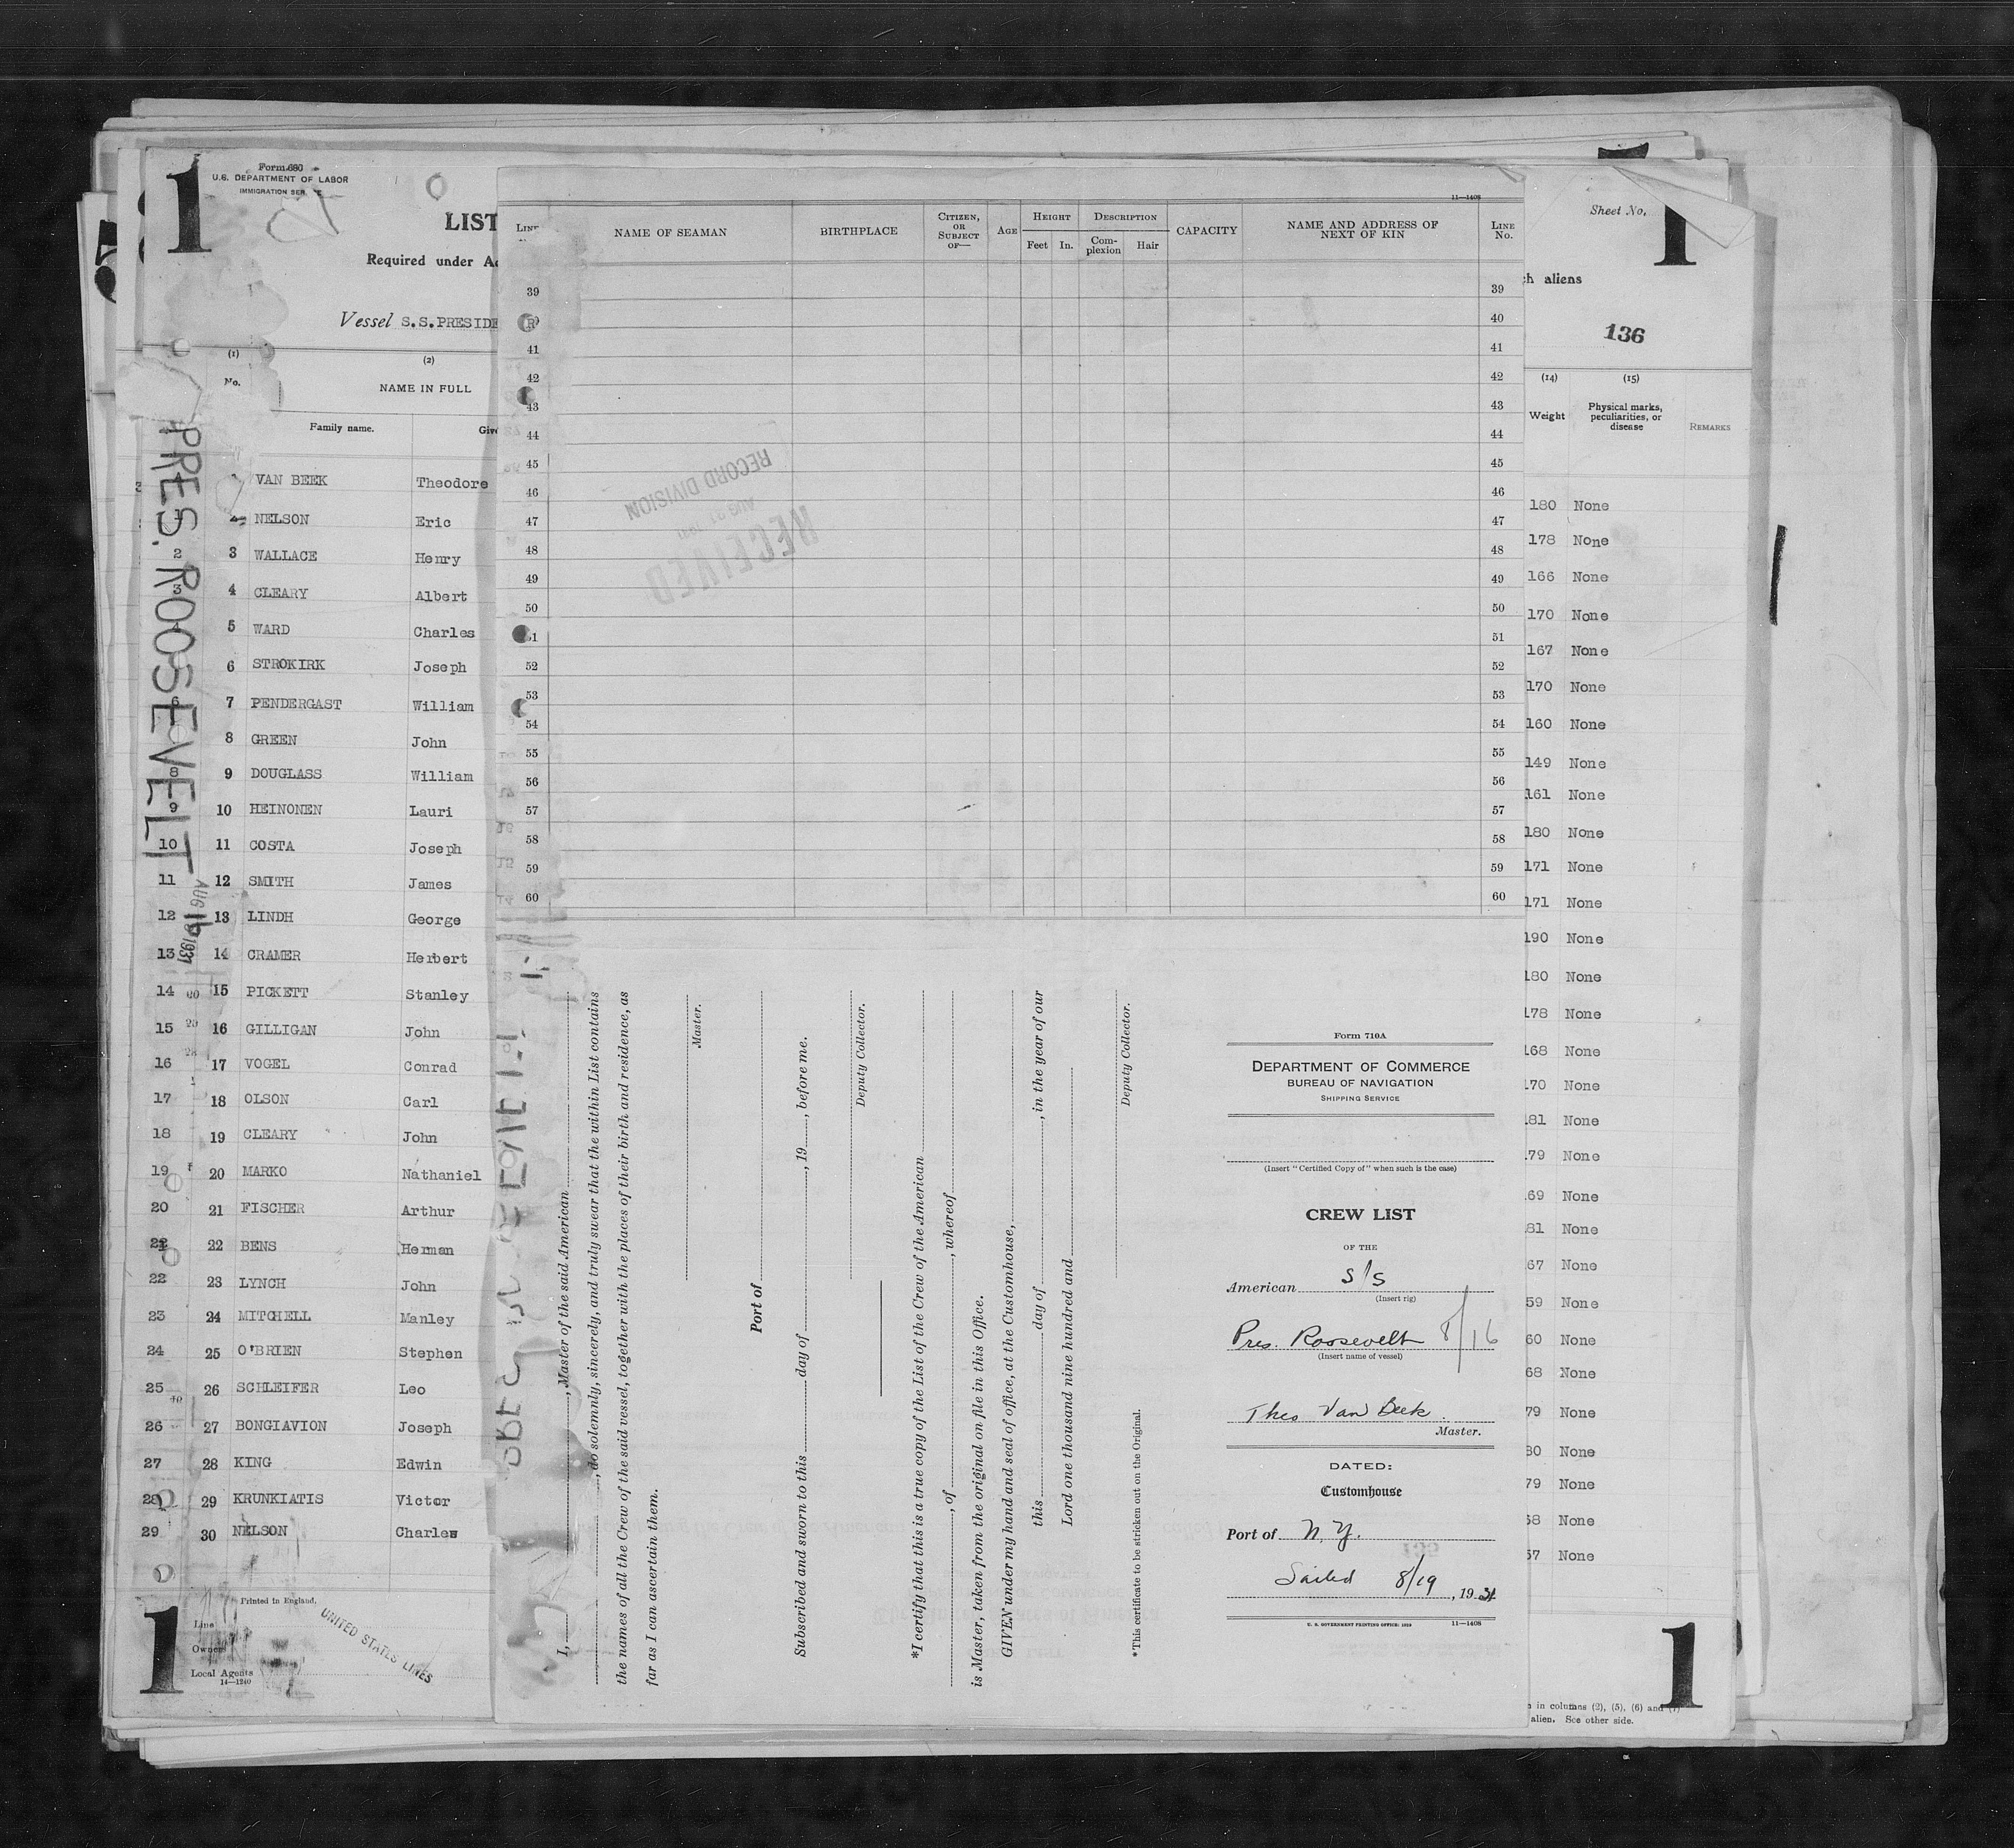 1
Form 680
U.S. DEPARTMENT OF LABOR
IMMIGRATION
LIST
Required under
Vessel S.S. PRESIDE
(1)
No.
(2)
NAME IN FULL
Family name.
PRES. ROOSEVELT
AUG 16 1931
VAN BEEK Theodore
NELSON Eric
2 3 WALLACE Henry
3 4 CLEARY Albert
4 5 WARD Charles
6 STROKIRK Joseph
6 7 PENDERGAST William
8 GREEN John
8 9 DOUGLASS William
9 10 HEINONEN Lauri
10 11 COSTA Joseph
11 12 SMITH James
12 13 LINDH George
13 14 CRAMER Herbert
14 15 PICKETT Stanley
15 16 GILLIGAN John
16 17 VOGEL Conrad
17 18 OLSON Carl
18 19 CLEARY John
19 20 MARKO Nathaniel
20 21 FISCHER Arthur
22 BENS Herman
22 23 LYNCH John
23 24 MITCHELL Manley
24 25 O'BRIEN Stephen
25 26 SCHLEIFER Leo
26 27 BONGIAVION Joseph
27 28 KING Edwin
28 29 KRUNKIATIS Victor
29 30 NELSON Charles
Printed in England.
Line
Owner
Local Agents
14—1240
UNITED STATES LINES
1
11—1408
NAME OF SEAMAN
BIRTHPLACE
CITIZEN, OR SUBJECT OF—
AGE
HEIGHT
Feet In.
DESCRIPTION
Complexion Hair
CAPACITY
NAME AND ADDRESS OF NEXT OF KIN
LINE No.
39 39
40
41 41
42 42
43 43
44 44
45 45
46 46
47 47
48 48
49 49
50 50
51 51
52 52
53 53
54 54
55 55
56 56
57 57
58 58
59 59
60 60
RECEIVED
RECORD DIVISION
I, , Master of the said American
, do solemnly, sincerely, and truly swear that the within List contains
the names of all the Crew of the said vessel, together with the places of their birth and residence, as
far as I can ascertain them.
Master.
Port of
Subscribed and sworn to this day of , 19 , before me.
Deputy Collector.
*I certify that this is a true copy of the List of the Crew of the American
, of , whereof
is Master, taken from the original on file in this Office.
GIVEN under my hand and seal of office, at the Customhouse,
this day of , in the year of our
Lord one thousand nine hundred and
Deputy Collector.
*This certificate to be stricken out on the Original.
Form 710A
DEPARTMENT OF COMMERCE
BUREAU OF NAVIGATION
SHIPPING SERVICE
(Insert "Certified Copy of" when such is the case)
CREW LIST
OF THE
American S/S
(Insert rig)
Pres. Roosevelt 8/16
(Insert name of vessel)
Theo Van Beek
Master.
DATED:
Customhouse
Port of N.Y.
Sailed 8/19, 1931
U. S. GOVERNMENT PRINTING OFFICE: 11—1408
Sheet No.
1
aliens
136
(14)
Weight
(15)
Physical marks, peculiarities, or disease
REMARKS
180 None
178 None
166 None
170 None
167 None
170 None
160 None
149 None
161 None
180 None
171 None
171 None
190 None
180 None
178 None
168 None
170 None
181 None
179 None
69 None
81 None
67 None
59 None
60 None
68 None
79 None
80 None
79 None
68 None
57 None
1
in columns (2), (5), (6) and (7)
alien. See other side.